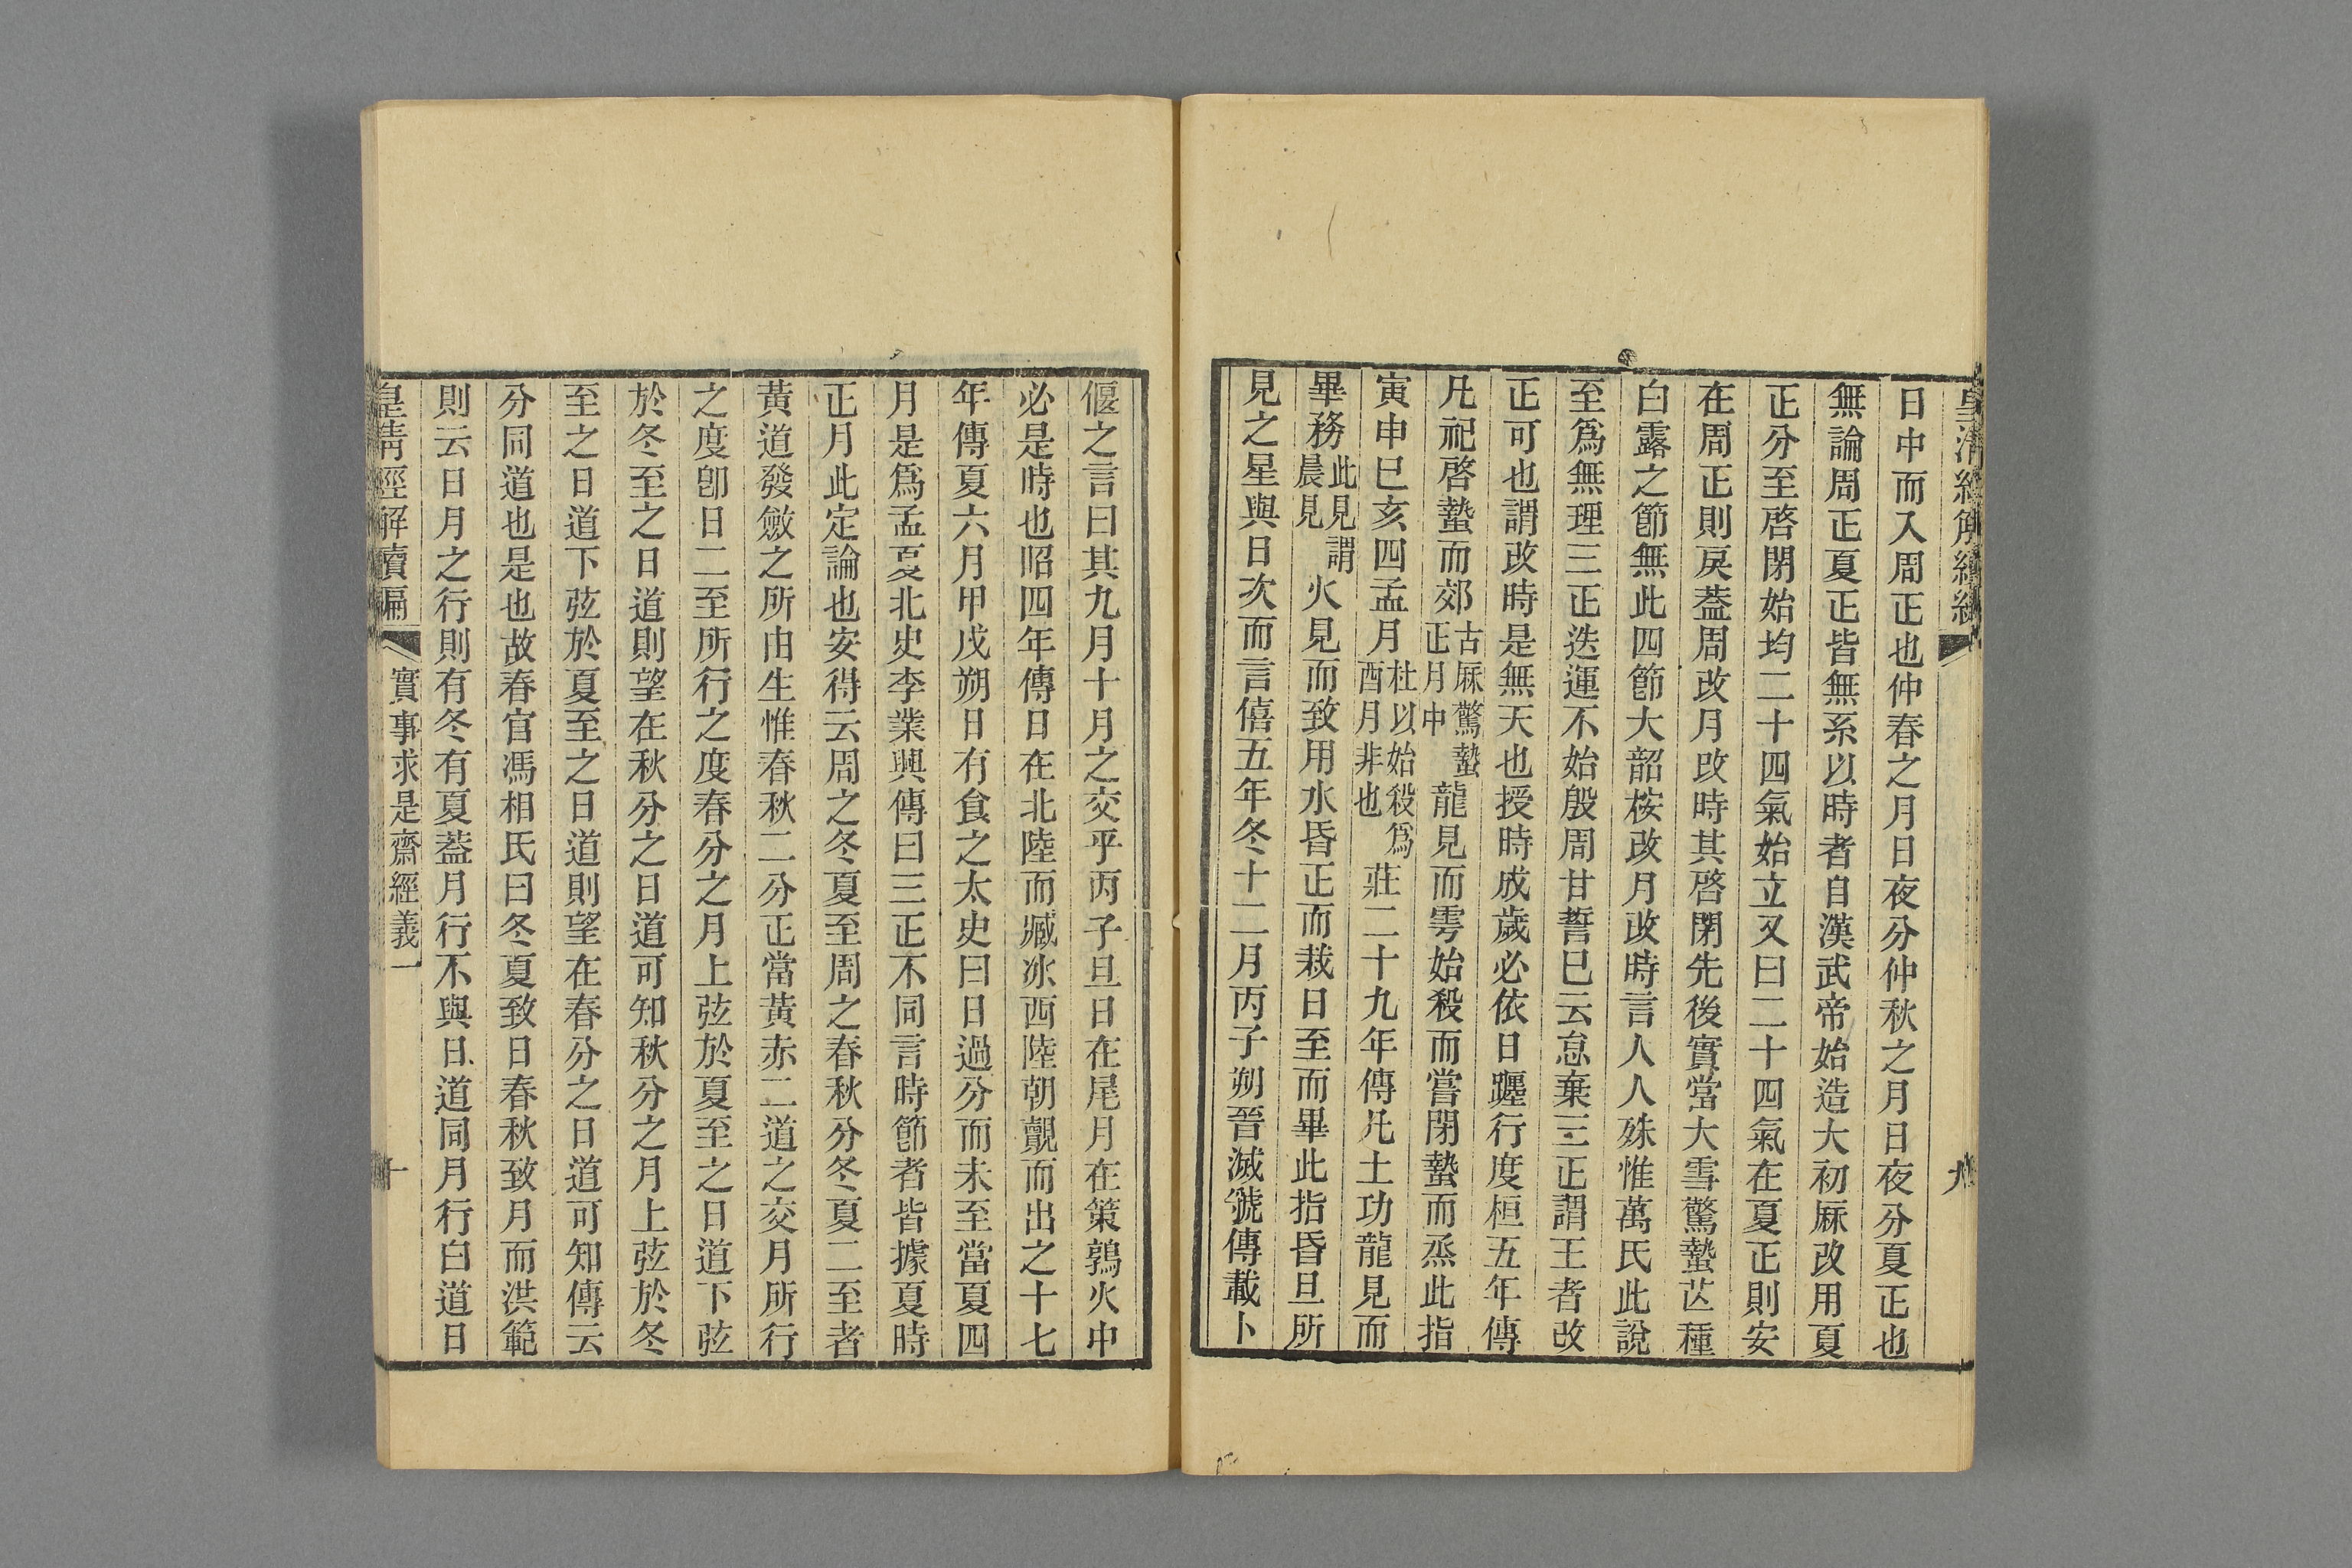 日中而入周正也仲春之月日夜分仲秋之月日夜分夏正也
無論周正夏正皆無系以時者自漢武帝始造大初厤改用夏
正分至啓閉始均二十四氣始立又曰二十四氣在夏正則安
在周正則戾葢周改月改時其啓閉先後實當大雪驚蟄芒種
白露之節無此四節大韶桉改月改時言人人殊惟萬氏此說
至爲無理三正迭運不始殷周甘誓巳云怠棄三正謂王者改
正可也謂改時是無天也授時成歲必依日躔行度桓五年傳
凡祀啓蟄而郊古厤驚蟄正月中龍見而雩始殺而嘗閉蟄而烝此指
寅申巳亥四孟月杜以始殺爲酉月非也莊二十九年傳凡土功龍見而
畢務此見謂晨見火見而致用水昏正而栽日至而畢此指昏旦所
見之星與日次而言僖五年冬十二月丙子朔晉滅虢傳載卜
偃之言曰其九月十月之交乎丙子旦日在尾月在策鶉火中
必是時也昭四年傳日在北陸而藏冰西陸朝覿而出之十七
年傳夏六月甲戌朔日有食之太史曰日過分而未至當夏四
月是爲孟夏北史李業興傳曰三正不同言時節者皆據夏時
正月此定論也安得云周之冬夏至周之春秋分冬夏二至者
黃道發斂之所由生惟春秋二分正當黃赤二道之交月所行
之度卽日二至所行之度春分之月上弦於夏至之日道下弦
於冬至之日道則望在秋分之日道可知秋分之月上弦於冬
至之日道下弦於夏至之日道則望在春分之日道可知傳云
分同道也是也故春官馮相氏曰冬夏致日春秋致月而洪範
則云日月之行則有冬有夏葢月行不與日道同月行白道日
皇清經解續編
實事求是齋經義一
十